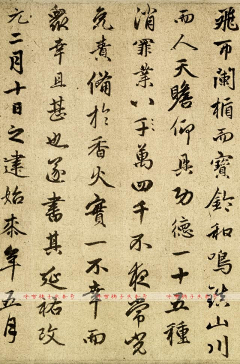 飛闌楯而寶鈴和鳴鎮山川
而人天瞻仰具功德一十五種
消罪業八千萬四千不夜常光
免責備於香火實一不幸而
眾幸且甚也遂書其延祐改
元二月十日之建始年五月